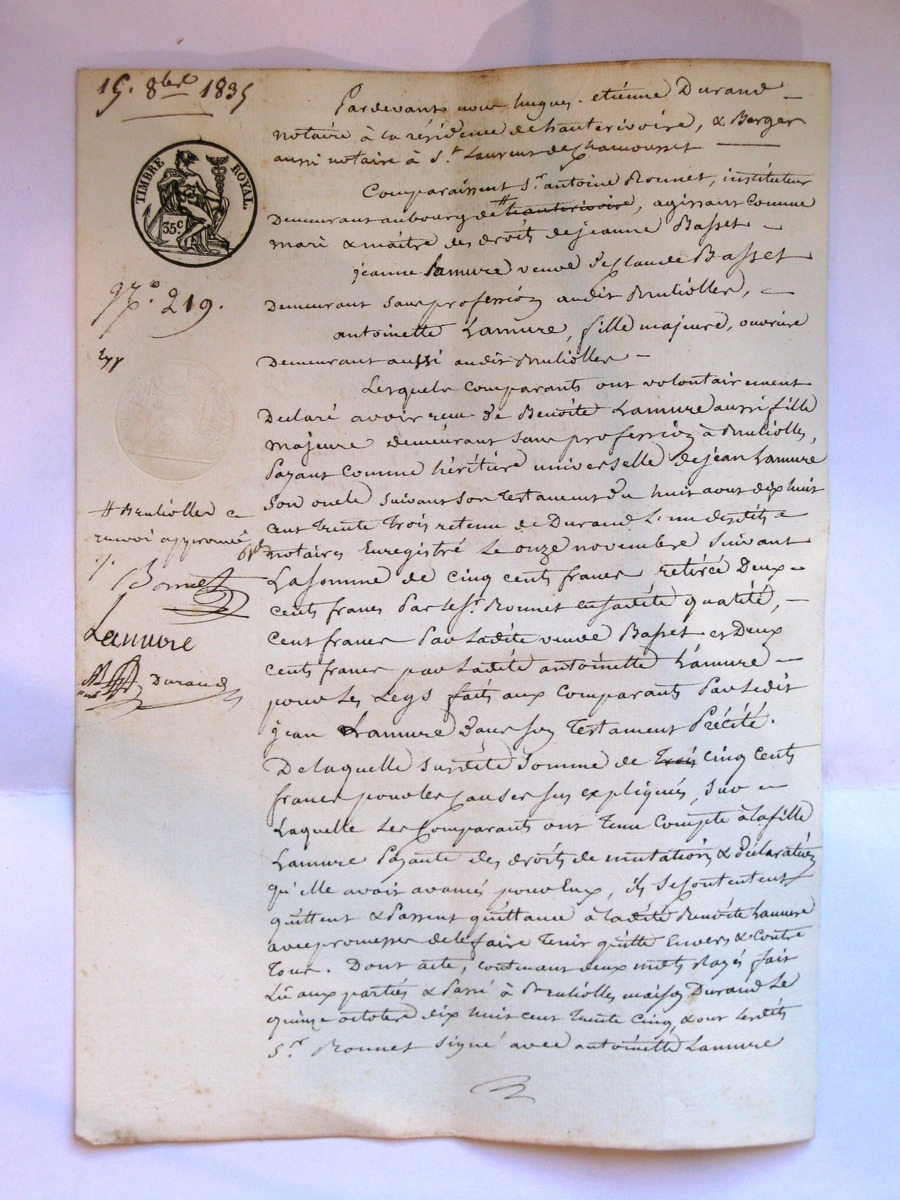 15. 8bre 1835
TIMBRE ROYAL.
35c
No. 219.
# Brulioller
renvoi approuvé
Bonnet
Lamure
Durand
Pardevant nous hugues-etiénne Durand
notaire à la résidence de hauterivoire, & Berger
aussi notaire à St. Laurent de Chamousset
Comparaissent Sr. antoine Bonnet, instituteur
Demeurant au bourg de # hauterivoire, agissant comme
mari & maître des droits de jeanne Basset
jeanne Lamure veuve de Claude Basset
Demeurant sans profession audit Brulioller,
antoinette Lamure, fille majeure, ouvrière
Demeurant aussi audit Brulioller
Lesquels comparants ont volontairement
Déclaré avoir reçu de Benoite Lamure aussi fille
majeure demeurant sans profession à Brulioller,
Payant comme héritière universelle de jean Lamure
Son oncle suivant son Testament du huit aout dix huit
cent trente trois retenu de Durand L'un desdits
notaires Enregistré Le onze novembre Suivant
La Somme de cinq cents francs retirée Deux
cents francs Par le Sr. Bonnet en sadite qualité,
Cent francs Par Ladite veuve Basset et Deux
cents francs par Ladite antoinette Lamure
pour les Legs faits aux comparants Par Ledit
jean Lamure dans son Testament Précité.
De laquelle susdite Somme de Trois cinq cents
francs pour les causes sus expliquées, sur
Laquelle les Comparants ont tenu compte à la fille
Lamure Payante des droits de mutation & déclaration
qu'elle avait avancés pour Eux, ils se contentent
quittent & Passent quittance à Ladite Benoite Lamure
avec promesse de le faire tenir quitte Envers & Contre
Tous. Dont acte, contenant deux mots rayés fait
Lu aux parties & Passé à Brulioller maison Durand Le
quinze octobre dix huit cent trente cinq, & ont lesdits
Sr. Bonnet signé avec antoinette Lamure